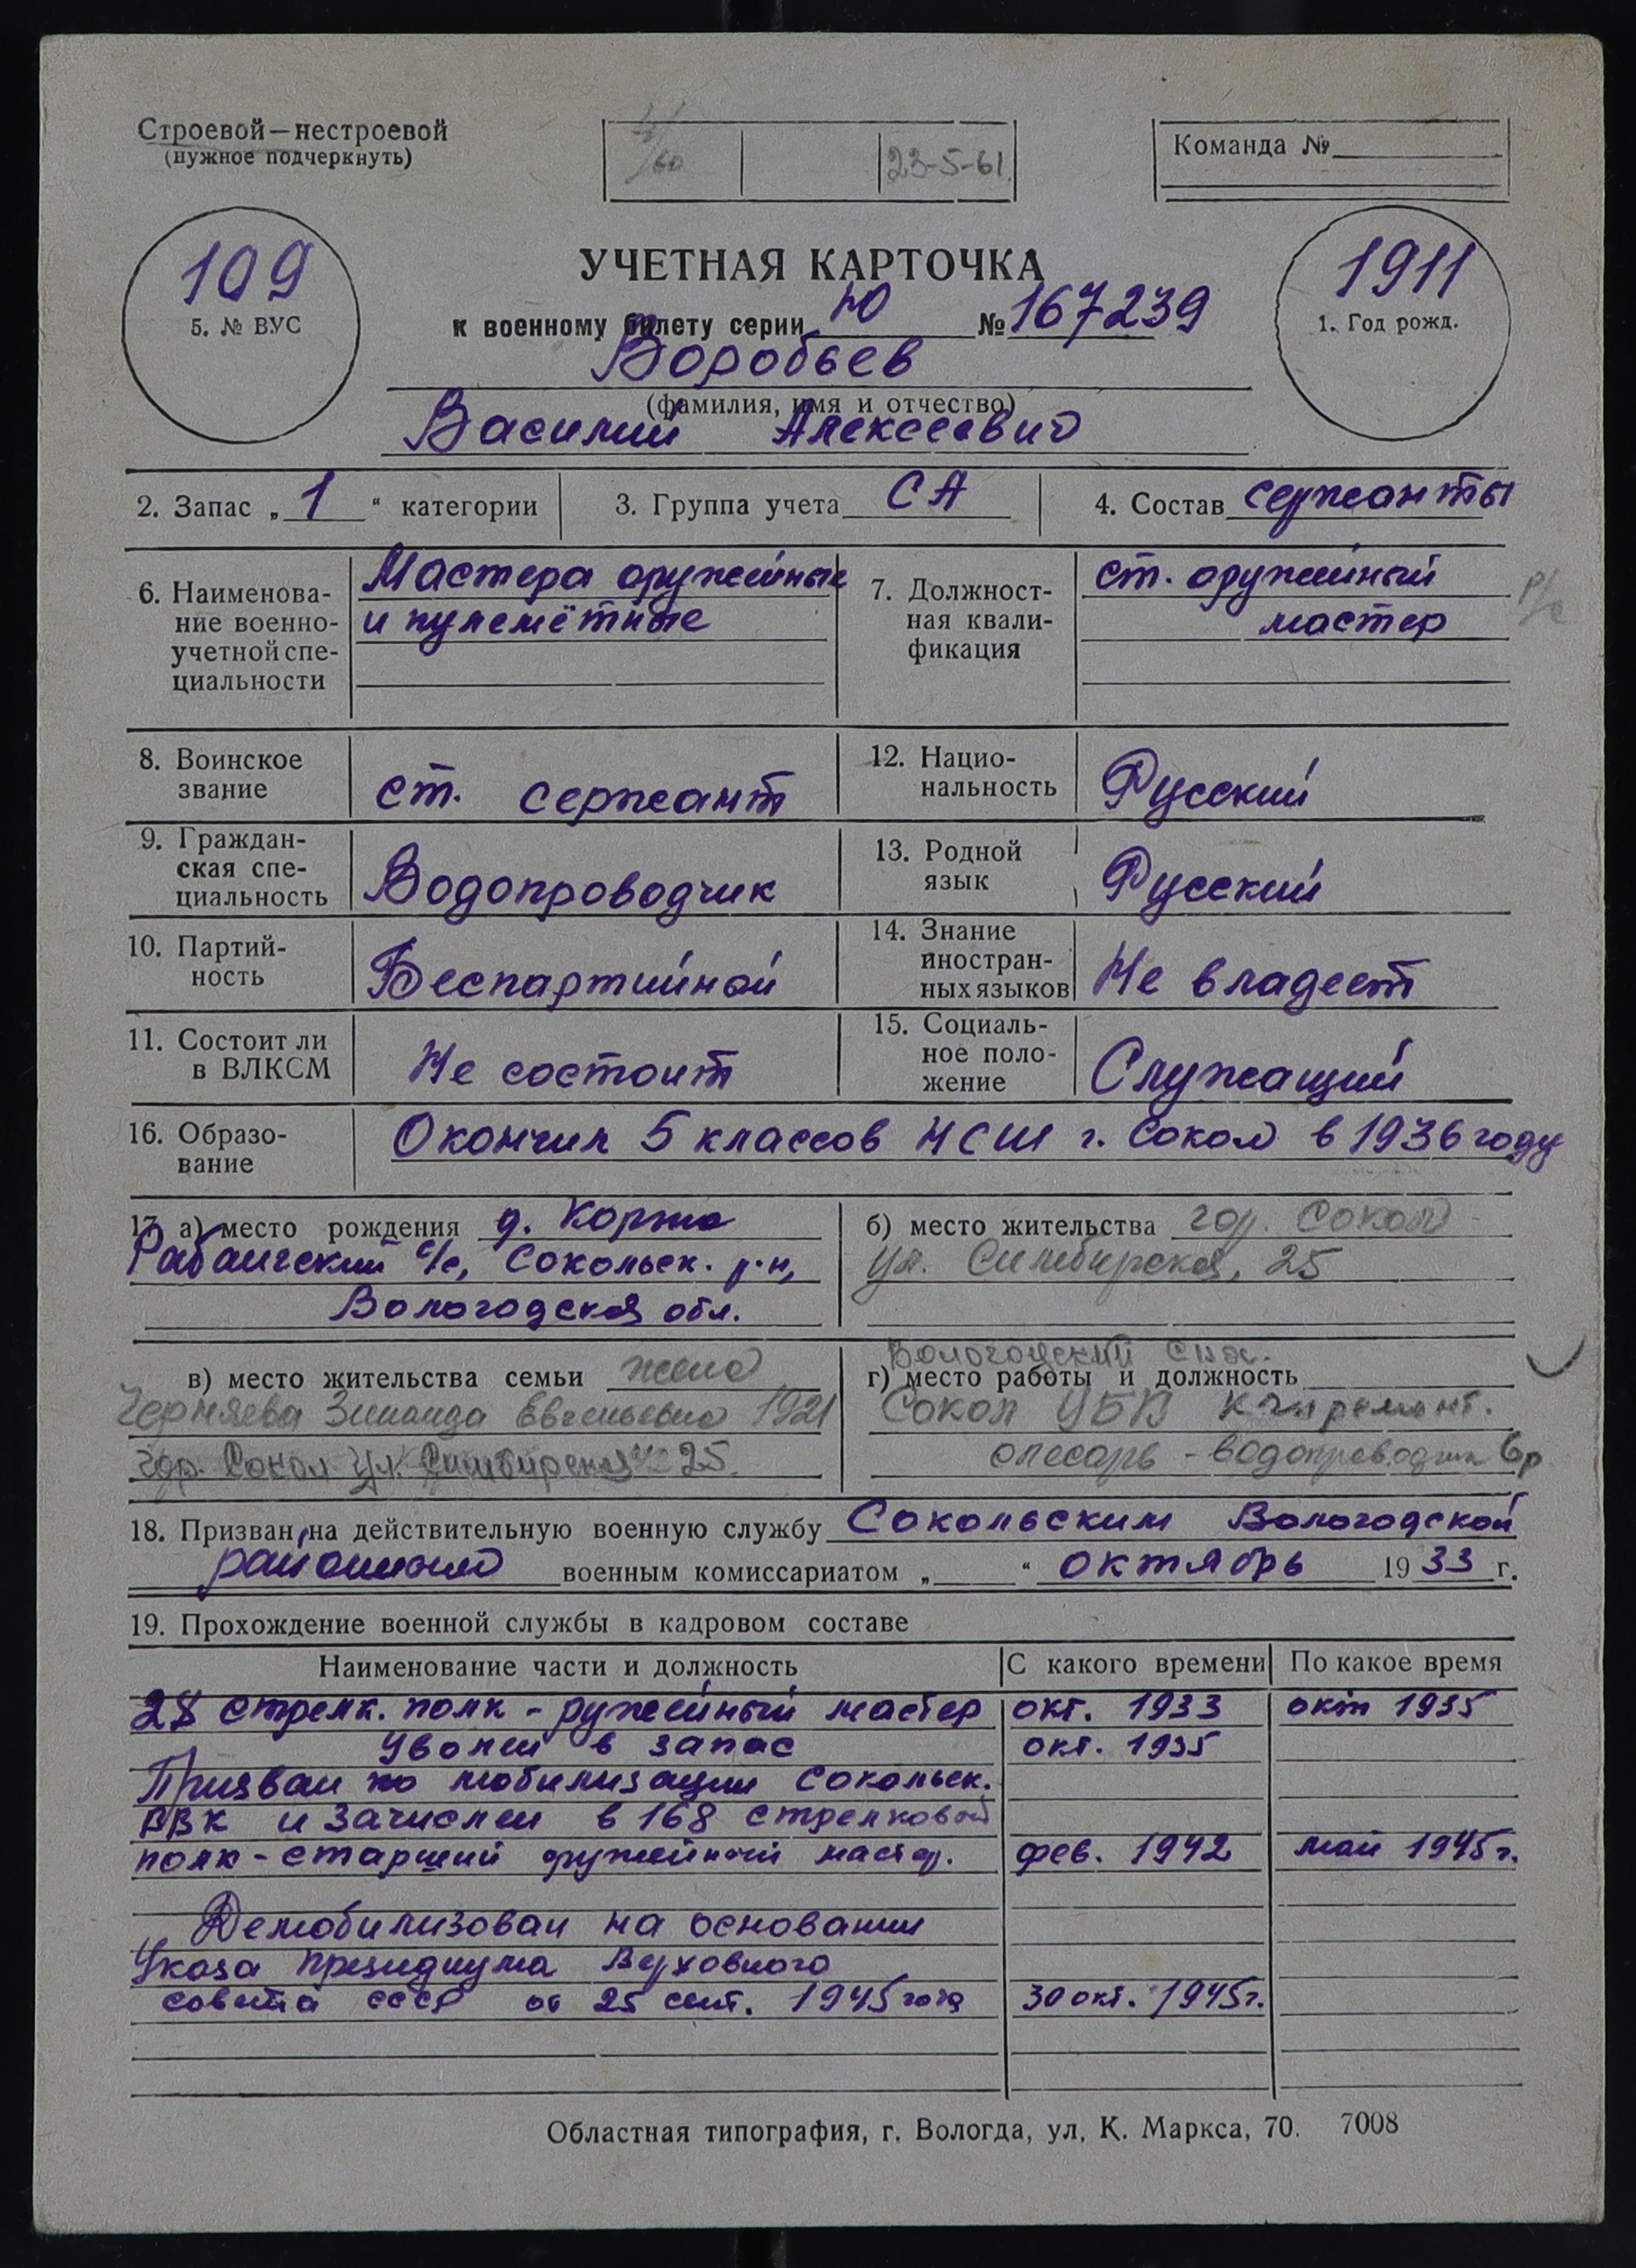 Строевой—нестроевой
(нужное подчеркнуть)
23-5-61
Команда №
109
5. № ВУС
УЧЕТНАЯ КАРТОЧКА
к военному билету серии Ю № 167239
1911
1. Год рожд.
Воробьев
(фамилия, имя и отчество)
Василий Алексеевич
2. Запас „ 1 “ категории
3. Группа учета СА
4. Состав сержанты
6. Наименова-
ние военно-
учетной спе-
циальности
Мастера оружейные
и пулемётные
7. Должност-
ная квали-
фикация
ст. оружейный
мастер
8. Воинское
звание
ст. сержант
12. Нацио-
нальность
Русский
9. Граждан-
ская спе-
циальность
Водопроводчик
13. Родной
язык
Русский
10. Партий-
ность
Беспартийной
14. Знание
иностран-
ных языков
Не владеет
11. Состоит ли
в ВЛКСМ
Не состоит
15. Социаль-
ное поло-
жение
Служащий
16. Образо-
вание
Окончил 5 классов НСШ г. Сокол в 1936 году
17. а) место рождения д. Коржа
Рабангский с/с, Сокольск. р-н,
Вологодская обл.
б) место жительства гор. Сокол
ул. Симбирская, 25
в) место жительства семьи жена
Черняева Зинаида Евгеньевна 1921
гор. Сокол ул. Симбирская 25.
Вологодский
г) место работы и должность
Сокол ЦБК
слесарь - водопроводчик 6р
18. Призван на действительную военную службу Сокольским Вологодской
районным военным комиссариатом „ “ октябрь 1933 г.
19. Прохождение военной службы в кадровом составе
Наименование части и должность С какого времени По какое время
28 стрелк. полк - ружейный мастер окт. 1933 окт 1935
Уволен в запас окт. 1935
Призван по мобилизации Сокольск.
РВК и зачислен в 168 стрелковой
полк - старший оружейный мастер. фев. 1942 май 1945 г.
Демобилизован на основании
Указа президиума Верховного
совета СССР от 25 сент. 1945 года 30 окт. 1945 г.
Областная типография, г. Вологда, ул. К. Маркса, 70. 7008